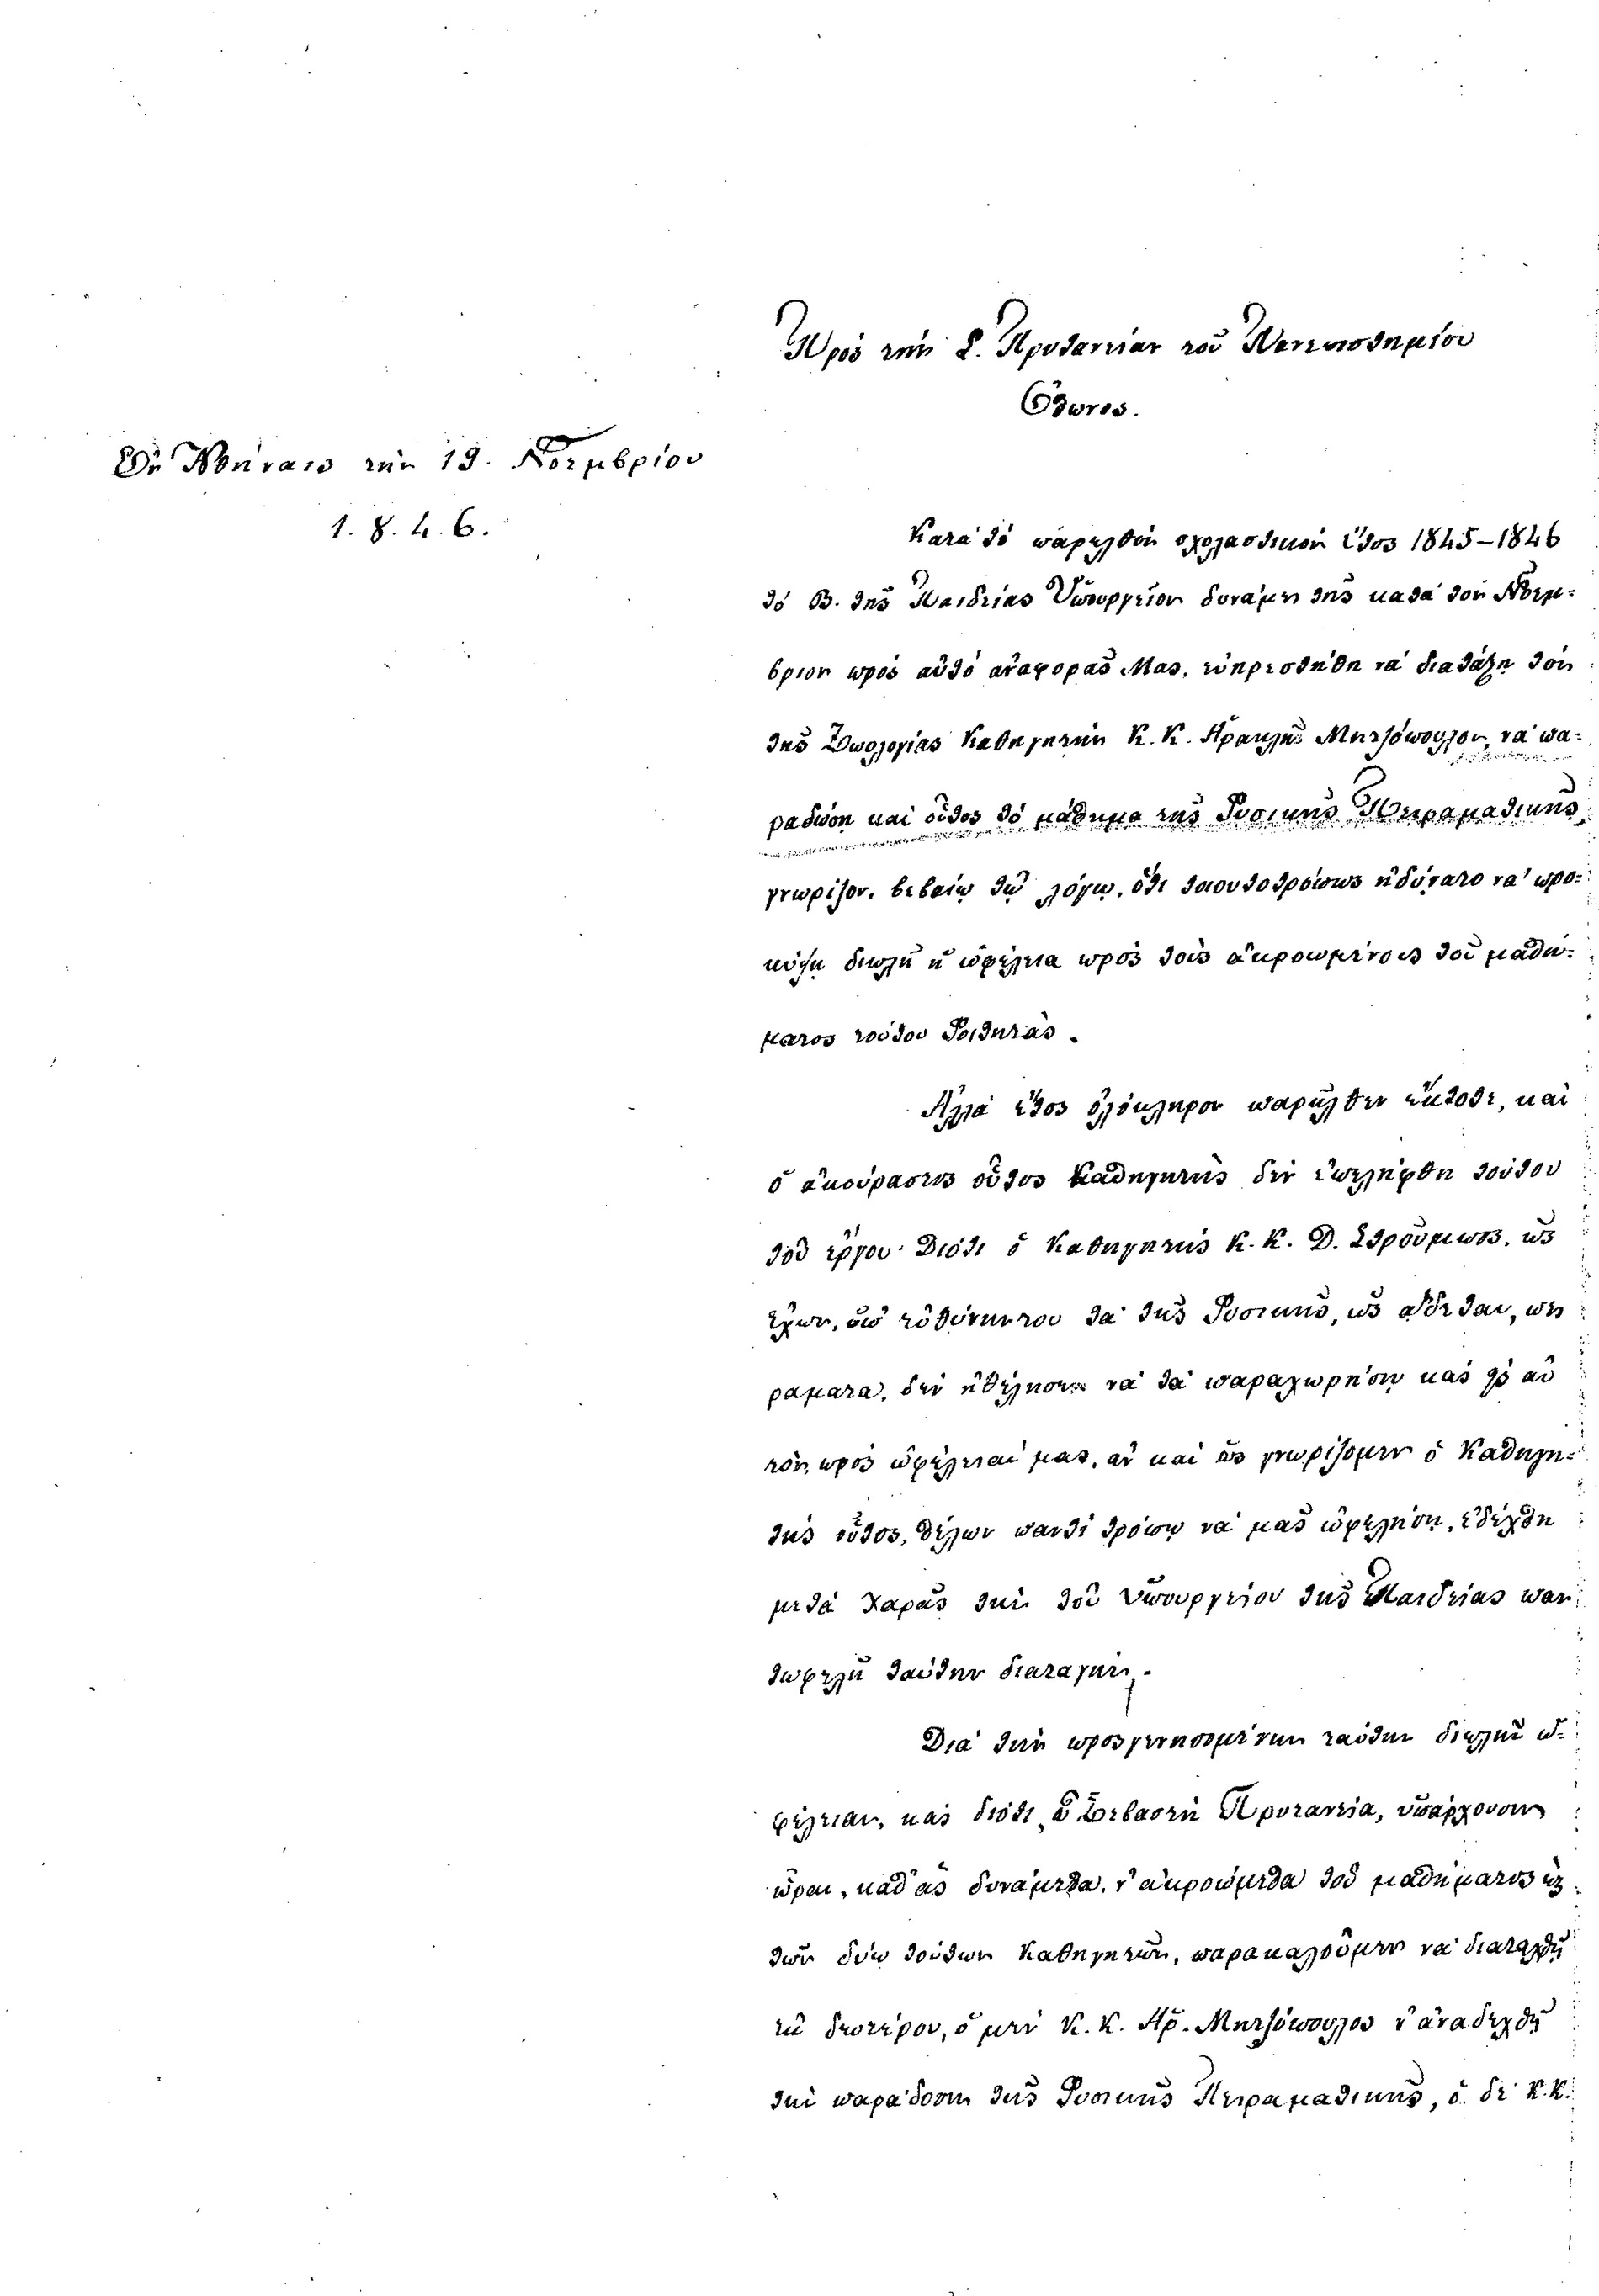 Πρὸς τὴν Σ. Πρυτανείαν τοῦ Πανεπιστημίου
Ὄθωνος.
Ἐν Ἀθήναις τὴν 19. Νοεμβρίου
1.8.4.6.
Κατὰ τὸ παρελθὸν σχολαστικὸν ἔτος 1845-1846
τὸ Β. τῆς Παιδείας Ὑπουργεῖον δυνάμει τῆς κατὰ τὸν Νοέμ-
βριον πρὸς αὐτὸ ἀναφορᾶς Μας, εὐηρεστήθη νὰ διατάξῃ τὸν
τῆς Ζωολογίας Καθηγητὴν Κ. Κ. Ἡρακλῆν Μητζόπουλον, νὰ πα-
ραδώσῃ καὶ οὗτος τὸ μάθημα τῆς Φυσικῆς Πειραματικῆς,
γνωρίζον, βεβαίῳ τῷ λόγῳ, ὅτι τοιουτοτρόπως ἠδύνατο νὰ προ-
κύψῃ διπλῆ ἡ ὠφέλεια πρὸς τοὺς ἀκροωμένους τοῦ μαθή-
ματος τούτου Φοιτητάς.
Ἀλλὰ ἔτος ὁλόκληρον παρῆλθεν ἔκτοτε, καὶ
ὁ ἀκούραστος οὗτος Καθηγητὴς δὲν ἐπελήφθη τούτου
τοῦ ἔργου· Διότι ὁ Καθηγητὴς Κ. Κ. Δ. Στροῦμπος, ὡς
ἔχων, ὑπ' εὐθύνην του τὰ τῆς Φυσικῆς, ὡς οἶδε ται, πει
ραματα, δὲν ἠθέλησεν νὰ τὰ παραχωρήσῃ κα εἰς αὐ
τὸν, πρὸς ὠφέλειάν μας, ἂν καὶ ὡς γνωρίζομεν ὁ Καθηγη-
τὴς οὗτος, θέλων παντὶ τρόπῳ νὰ μᾶς ὠφελήσῃ, ἐδέχθη
μετὰ χαρᾶς τὴν τοῦ Ὑπουργείου τῆς Παιδείας παν
τωφελῆ ταύτην διαταγήν.
Διὰ τὴν προσγεννησομένην ταύτην διπλῆν ὠ-
φέλειαν, καὶ διότι, ὦ Σεβαστὴ Πρυτανεία, ὑπάρχουσιν
ὧραι, καθ' ἃς δυνάμεθα, ν' ἀκροώμεθα τοῦ μαθήματος ἐκ
τῶν δύω τούτων Καθηγητῶν, παρακαλοῦμεν νὰ διαταχθῇ
ἐκ δευτέρου, ὁ μὲν Κ. Κ. Ἡρ. Μητζόπουλος ν' ἀναδεχθῇ
τὴν παράδοσιν τῆς Φυσικῆς Πειραματικῆς, ὁ δὲ Κ.Κ.